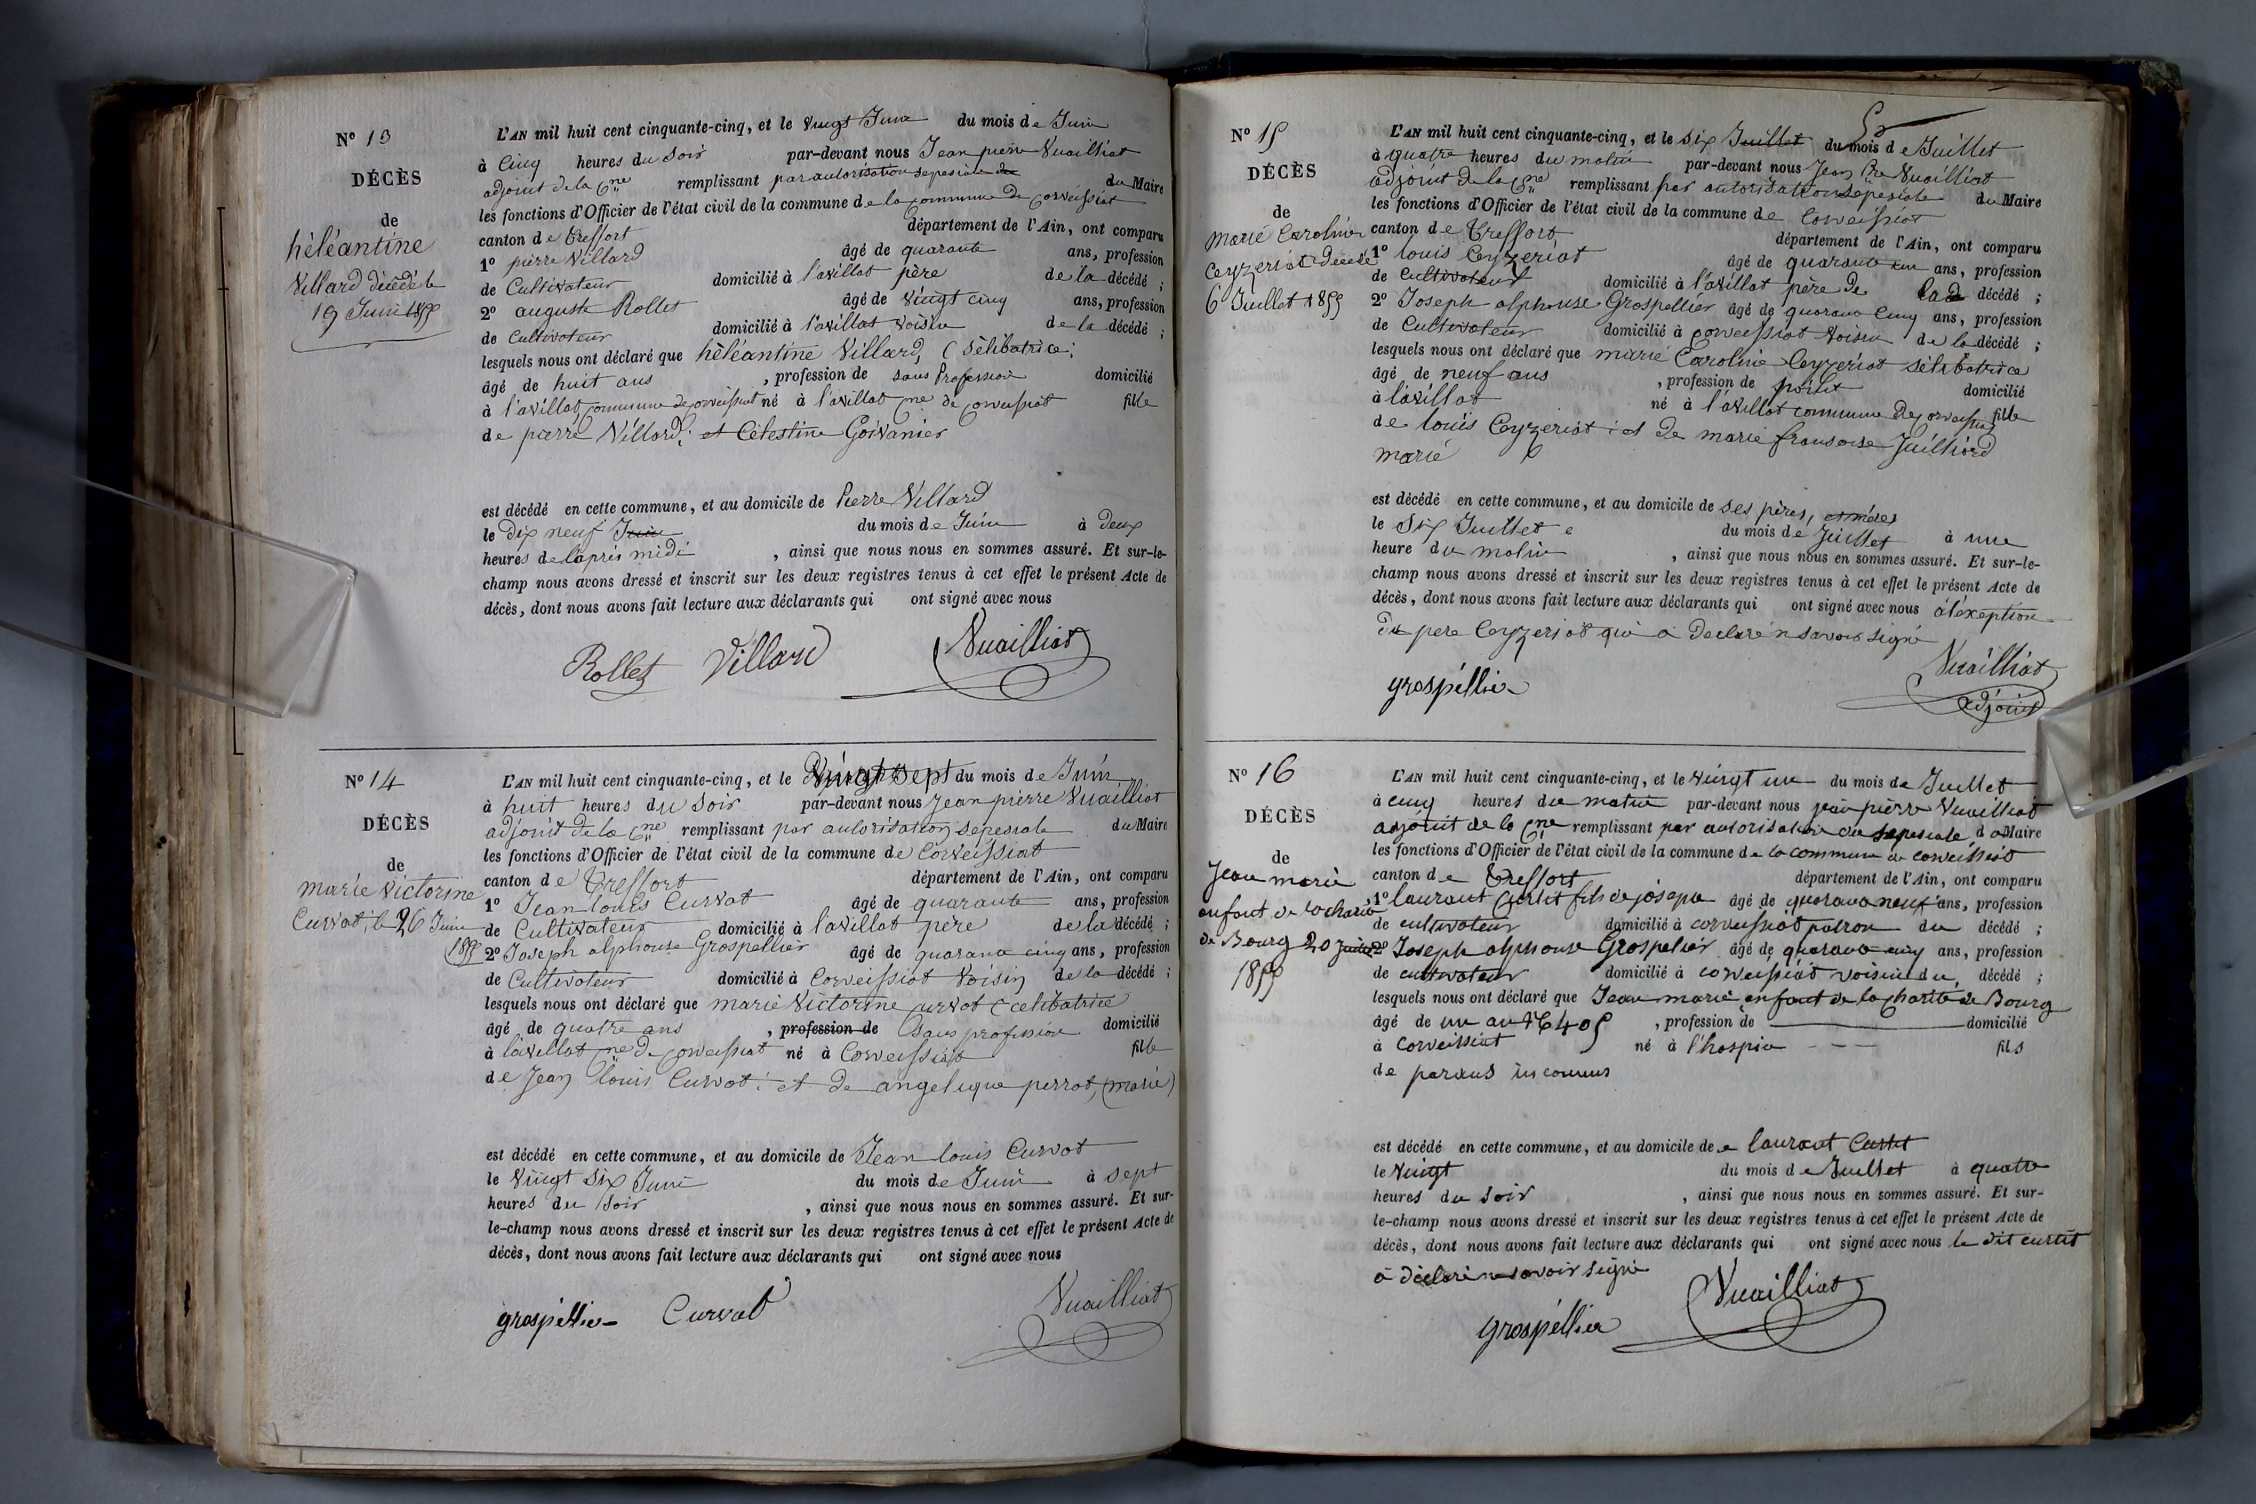 N° 13
DÉCÈS
de
hèléantine
Villard décédé le
19 Juin 1855
L'AN mil huit cent cinquante-cinq, et le Vingt Juin du mois de Juin
à Cinq heures du Soir par-devant nous Jean pierre Vuailliat
adjoint de la Cne remplissant par autorisation sepesiale du Maire
les fonctions d'Officier de l'état civil de la commune de la commune de Corveissiat
canton de Treffort département de l'Ain, ont comparu
1° pierre Villard âgé de quarante ans, profession
de Cultivateur domicilié à l'avillat père de la décédé ;
2° auguste Rollet âgé de Vingt cinq ans, profession
de Cultivateur domicilié à l'avillat voisin de la décédé ;
lesquels nous ont déclaré que hèléantine Villard, (Sélibatrice;
âgé de huit ans , profession de sans Profession domicilié
à l'avillat commune de corveissiat né à l'avillat Cne de corveissiat fille
de pierre Villard; et Célestine Goivanier
est décédé en cette commune, et au domicile de Pierre Villard
le Dix neuf Juin du mois de Juin à Deux
heures de laprès midi , ainsi que nous nous en sommes assuré. Et sur-le-
champ nous avons dressé et inscrit sur les deux registres tenus à cet effet le présent Acte de
décès, dont nous avons fait lecture aux déclarants qui ont signé avec nous
Rollet Villard Vuailliat
N° 14
DÉCÈS
de
marie Victorine
Curvat, le 26 Juin
1855
L'AN mil huit cent cinquante-cinq, et le Vingt Sept du mois de Juin
à huit heures du Soir par-devant nous Jean pierre Vuailliat
adjoint de la Cne remplissant par autorisation sepesiale du Maire
les fonctions d'Officier de l'état civil de la commune de Corveissiat
canton de Treffort département de l'Ain, ont comparu
1° Jean louis Curvat âgé de quarante ans, profession
de Cultivateur domicilié à l'avillat père de la décédé ;
2° Joseph alphonse Grospellier âgé de quarante cinq ans, profession
de Cultivateur domicilié à Corveissiat Voisin de la décédé ;
lesquels nous ont déclaré que marie Victorine curvat (celibatrice
âgé de quatre ans , profession de (sans profession domicilié
à l'avillat Cne de corveissiat né à Corveissiat fille
de Jean louis Curvat; et de angelique perrot, (marié)
est décédé en cette commune, et au domicile de Jean louis Curvat
le Vingt Six Juin du mois de Juin à sept
heures du Soir , ainsi que nous nous en sommes assuré. Et sur-
le-champ nous avons dressé et inscrit sur les deux registres tenus à cet effet le présent Acte de
décès, dont nous avons fait lecture aux déclarants qui ont signé avec nous
grospellier Curvat Vuailliat
N° 15
DÉCÈS
de
marie Caroline
Ceyzeriat décédé
6 Juillet 1855
L'AN mil huit cent cinquante-cinq, et le Six Juillet du mois de Juillet
à quatre heures du matin par-devant nous Jean Pre Vuailliat
adjoint de la Cne remplissant par autorisation sepesiale du Maire
les fonctions d'Officier de l'état civil de la commune de Corveissiat
canton de Treffort département de l'Ain, ont comparu
1° louis Ceyzeriat âgé de quarante un ans, profession
de Cultivateur domicilié à l'avillat père de la décédé ;
2° Joseph alphonse Grospellier âgé de quarante Cinq ans, profession
de Cultivateur domicilié à corveissiat Voisin de la décédé ;
lesquels nous ont déclaré que marie Caroline Ceyzeriat sélibatrice
âgé de neuf ans , profession de point domicilié
à l'avillat né à l'avillat commune de corveissiat fille
de louis Ceyzeriat; et de marie fransoise Juilliard
marié
est décédé en cette commune, et au domicile de ses pères, et mères
le Six Juillet du mois de Juillet à une
heure du matin , ainsi que nous nous en sommes assuré. Et sur-le-
champ nous avons dressé et inscrit sur les deux registres tenus à cet effet le présent Acte de
décès, dont nous avons fait lecture aux déclarants qui ont signé avec nous à léxeption
du pere Ceyzeriat qui a Declaré n savoir signé
grospéllier Vuailliat
adjoint
N° 16
DÉCÈS
de
Jean marie
enfant de la charité
de Bourg 20 Juillet
1855
L'AN mil huit cent cinquante-cinq, et le Vingt un du mois de Juillet
à cinq heures du matin par-devant nous jean pierre Vuailliat
adjoint de la Cne remplissant par autorisation sepesiale du Maire
les fonctions d'Officier de l'état civil de la commune de la commune de corveissiat
canton de Treffort département de l'Ain, ont comparu
1° laurant Curtit fils de joseph âgé de quarante neuf ans, profession
de cultivateur domicilié à corveissiat patron du décédé ;
2° Joseph alphonse Grospelier âgé de quarante cinq ans, profession
de cultivateur domicilié à corveissiat voisin du décédé ;
lesquels nous ont déclaré que Jean marie enfant de la charité de Bourg
âgé de un an , profession de domicilié
à corveissiat né à l'hospice fils
de parans inconnus
est décédé en cette commune, et au domicile de laurant Curtit
le Vingt du mois de Juillet à quatre
heures du Soir , ainsi que nous nous en sommes assuré. Et sur-
le-champ nous avons dressé et inscrit sur les deux registres tenus à cet effet le présent Acte de
décès, dont nous avons fait lecture aux déclarants qui ont signé avec nous le dit curtit
à déclaré ne savoir signé
grospéllier Vuailliat